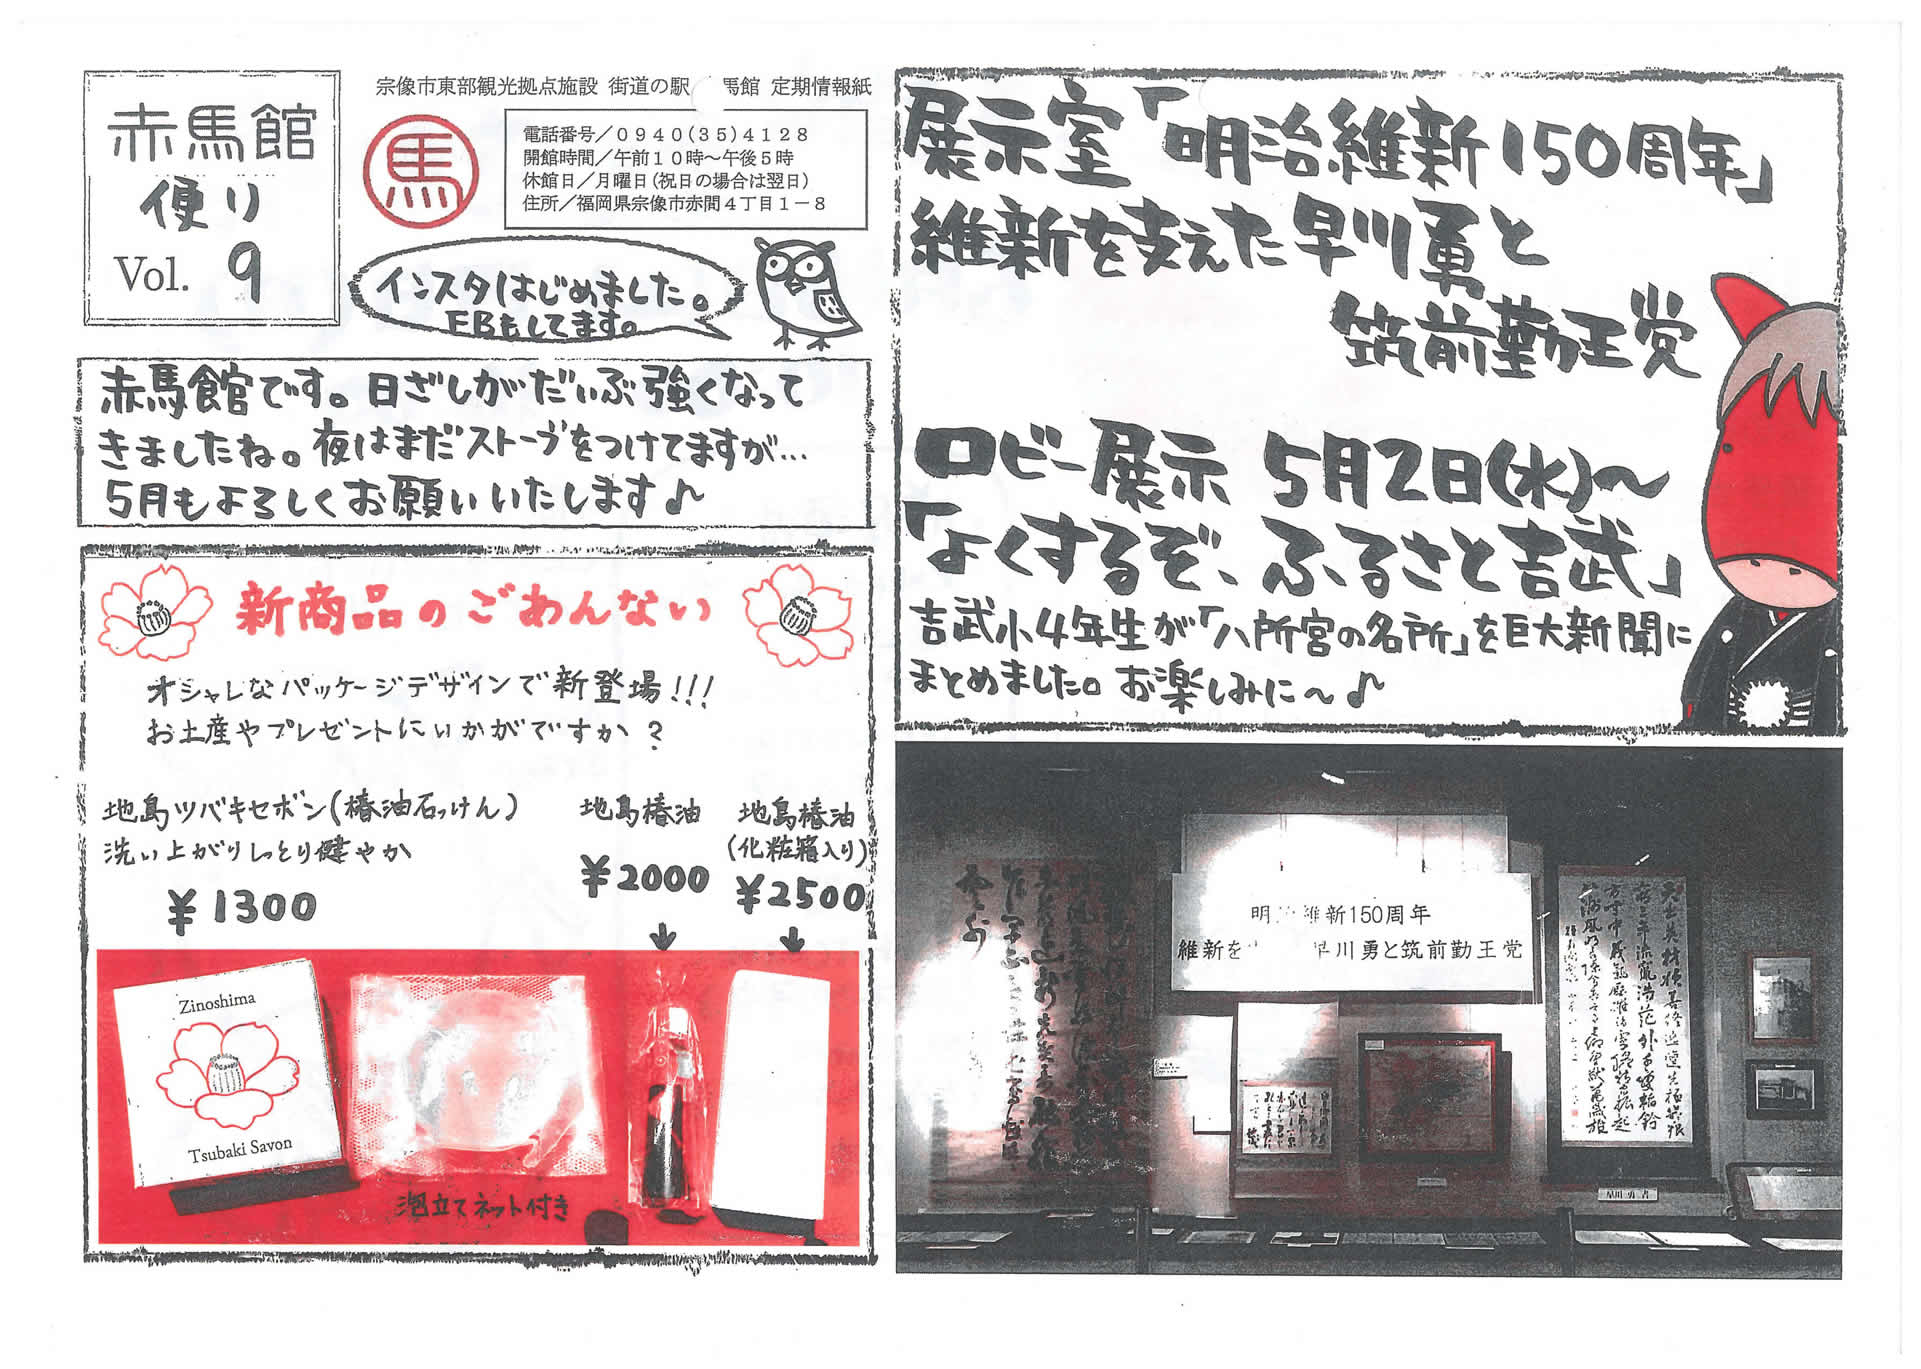 赤馬館
便り
Vol. 9
宗像市東部観光拠点施設 街道の駅 馬館 定期情報紙
馬
電話番号／０９４０(３５)４１２８
開館時間／午前１０時～午後５時
休館日／月曜日(祝日の場合は翌日)
住所／福岡県宗像市赤間４丁目１－８
インスタはじめました。
FBもしてます。
赤馬館です。日ざしがだいぶ強くなって
きましたね。夜はまだストーブをつけてますが…
5月もよろしくお願いいたします♪
新商品のごあんない
オシャレなパッケージデザインで新登場!!!
お土産やプレゼントにいかがですか？
地島ツバキセボン(椿油石っけん)
洗い上がりしっとり健やか
¥1300
地島椿油
¥2000
地島椿油
(化粧箱入り)
¥2500
Zinoshima
Tsubaki Savon
泡立てネット付き
展示室「明治維新150周年」
維新を支えた早川勇と
筑前勤王党
ロビー展示 5月2日(水)～
「よくするぞ、ふるさと吉武」
吉武小4年生が「八所宮の名所」を巨大新聞に
まとめました。お楽しみに～♪
明治維新150周年
維新を 早川勇と筑前勤王党
早川 勇 書